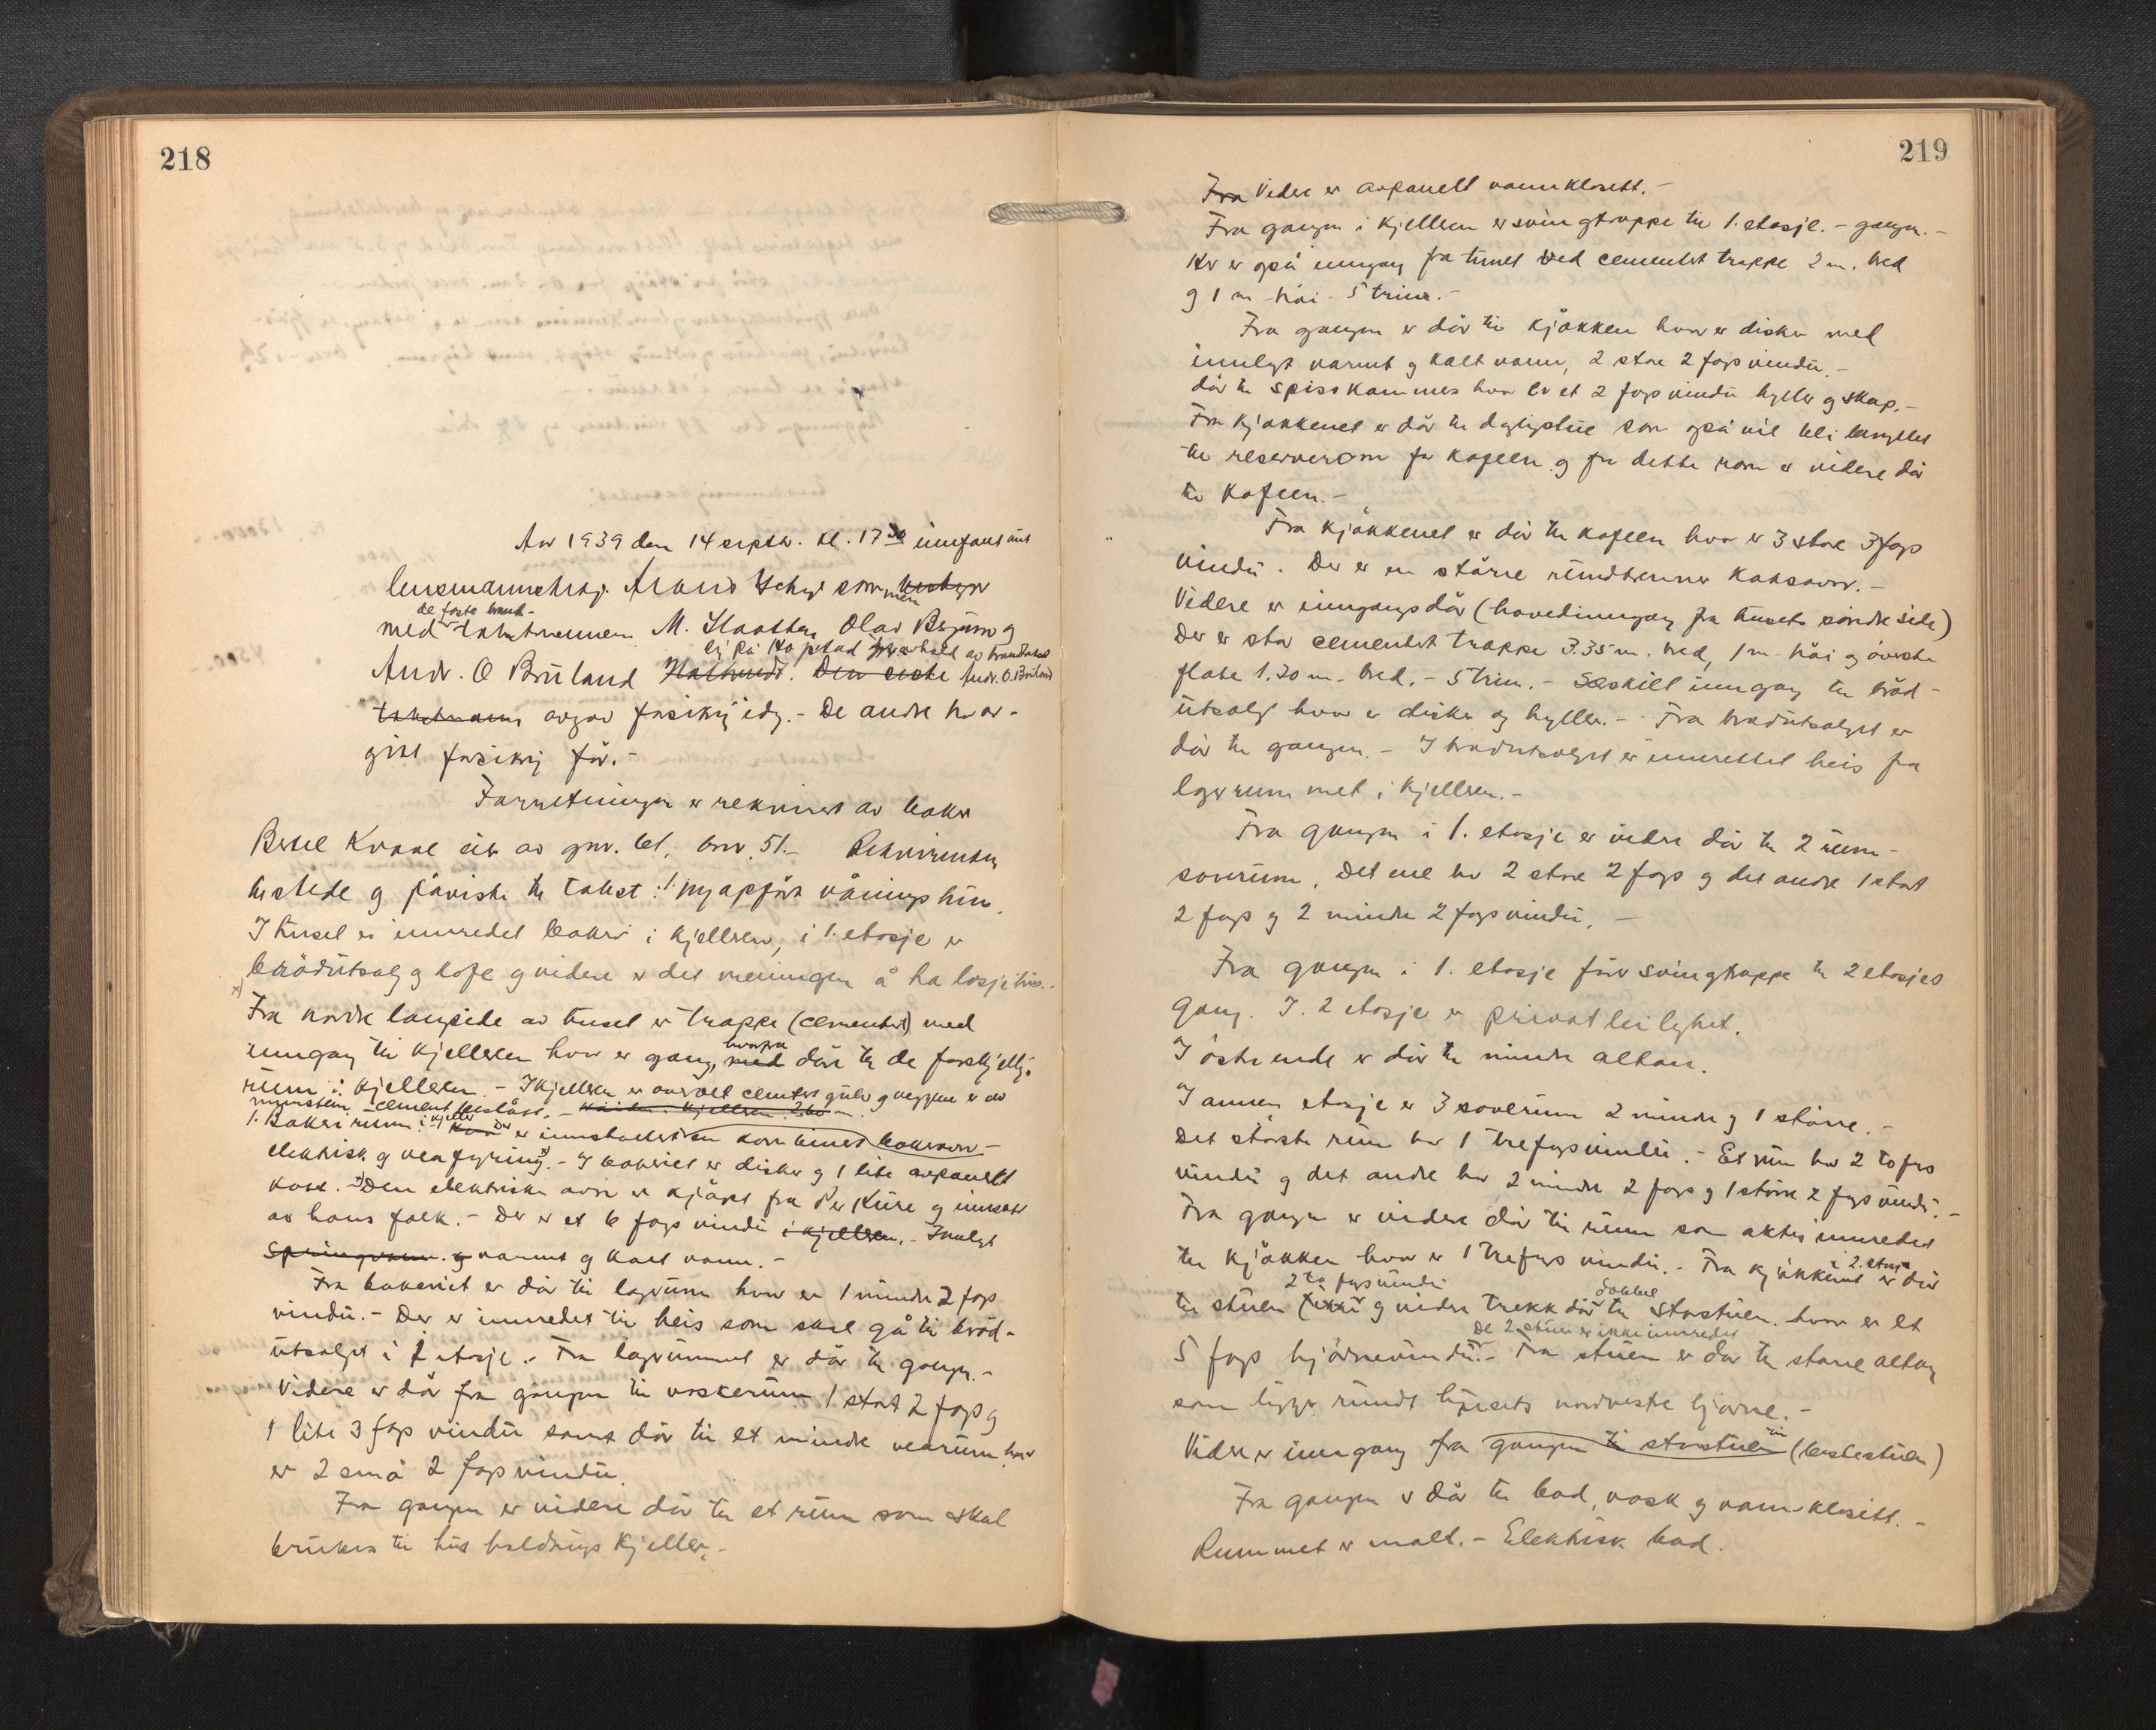 218
Aar 1939 den 14 septbr. kl. 17 30 innfant
lensmannsbetj. som
de faste brand-
med takstmennene M. Olav og
Andr. O Bruland Den siste Andr. O. Bruland
avgav forsikrg idag. - De andre har av-
gitt forsikrg før. -
Forretningen er rekvirert av baker
Bertel eier av gnr. 61, bnr. 51. - Rekvirenten
tilstede og påviste til takst: 1. nyoppført våningshus.
I huset er innredet bakeri i kjelleren, i 1. etasje er
brödutsalg og kafe og videre er det meningen å ha losjihus. -
Fra nordre langside av huset er trappe (cementert) med
hvorfra
inngang til kjelleren hvor er gang, med dör til de forskjellige
rum i kjelleren. - I kjelleren er overalt cementert gulv og veggene er av
murstein cement
1. Bakeri rum i kjeller Der er innstallert en kombinert bakerovn -
elektrisk og vedfyring. - I bakeriet er disker og 1 lite avpanelt
Den elektriske ovn er kjöpt fra Per Kure og innsatt
av hans folk. - Der er et 6 fags vindu i kjelleren. - Innlagt
springvann og varmt og kalt vann. -
Fra bakeriet er dör til lagerrum hvor er 1 mindre 2 fags
vindu. - Der er innredet til heis som skal gå til bröd-
utsalget i 1 etasje. - Fra lagerrummet er dör til gangen. -
Videre er dör fra gangen til vaskerum 1 stort 2 fags og
1 lite 3 fags vindu samt dör til et mindre vedrum hvor
er 2 små 2 fags vindu.
Fra gangen er videre dör til et rum som skal
brukes til husholdnings kjeller. -
219
Fra Videre er avpanelt vannklosett. -
Fra gangen i kjelleren er svingtrappe til 1. etasje. - gangen. -
Her er også inngang fra tunet ved cementert trappe 2 m. bred
og 1 m höi - 5 trin. -
Fra gangen er dör til kjökken hvor er disker med
innlagt varmt og kalt vann, 2 store 2 fags vindu. -
dör til spisskammes hvor er et 2 fags vindu hyller og skap. -
Fra kjøkkenet er dör til dagligstue som også vil bli benyttet
til reserverom for kafeen og fra dette rom er videre dör
til kafeen. -
Fra kjökkenet er dör til kafeen hvor er 3 store 3 fags
vindu. Der er en större rundbrenner koksovn. -
Videre er inngangsdör (hovedinngang fra husets söndre side)
Der er stor cementert trappe 3.35 m. bred, 1 m höi og överste
flate 1.30 m. bred. - 5 trin. - Særskilt inngang til bröd-
utsalg hvor er disker og hyller. - Fra brödutsalget er
dör til gangen. - I brödutsalget er innrettet heis fra
lagerrummet i kjelleren. -
Fra gangen i 1. etasje er videre dör til 2 rum -
soverum. Det ene har 2 store 2 fags og det andre 1 stort
2 fags og 2 mindre 2 fags vindu. -
Fra gangen i 1. etasje förer svingtrappe til 2 etasjes
gang. I. 2 etasje er privat leilighet.
I östre ende er dör til mindre altan.
I annen etasje er 3 soverum 2 mindre og 1 större. -
Det störste rum har 1 trefagsvindu. - Et rum har 2 tofags
vindu og det andre har 2 mindre 2 fags og 1 större 2 fags vindu. -
Fra gangen er videre dör til rum som aktes innredet
til kjökken hvor er 1 trefags vindu. - Fra kjökkenet i 2. etasje er dör
2 to fags vindu dobbel
til stuen og videre trekk dör til storstuen. hvor er et
De 2 stuer er ikke innredet
5 fags hjörnevindu. - Fra stuen er dör til större altan
som ligger rundt husets nordvestre hjörne. -
Videre er inngang fra gangen til storstuen (bestestuen)
Fra gangen er dör til bad, vask og vannklosett. -
Rummet er malt. - Elektrisk bad.